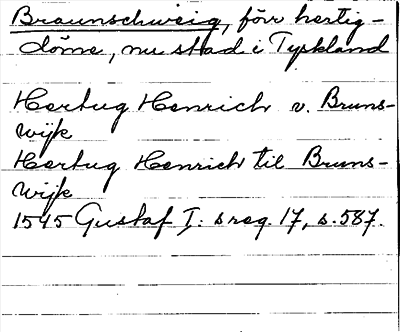 Braunschweig, förr hertig-
döme, nu stad i Tyskland
Hertug Henrich v. Bruns-
wijk
Hertug Henrich til Bruns-
wijk
1545 Gustaf I: s reg. 17, s. 587.